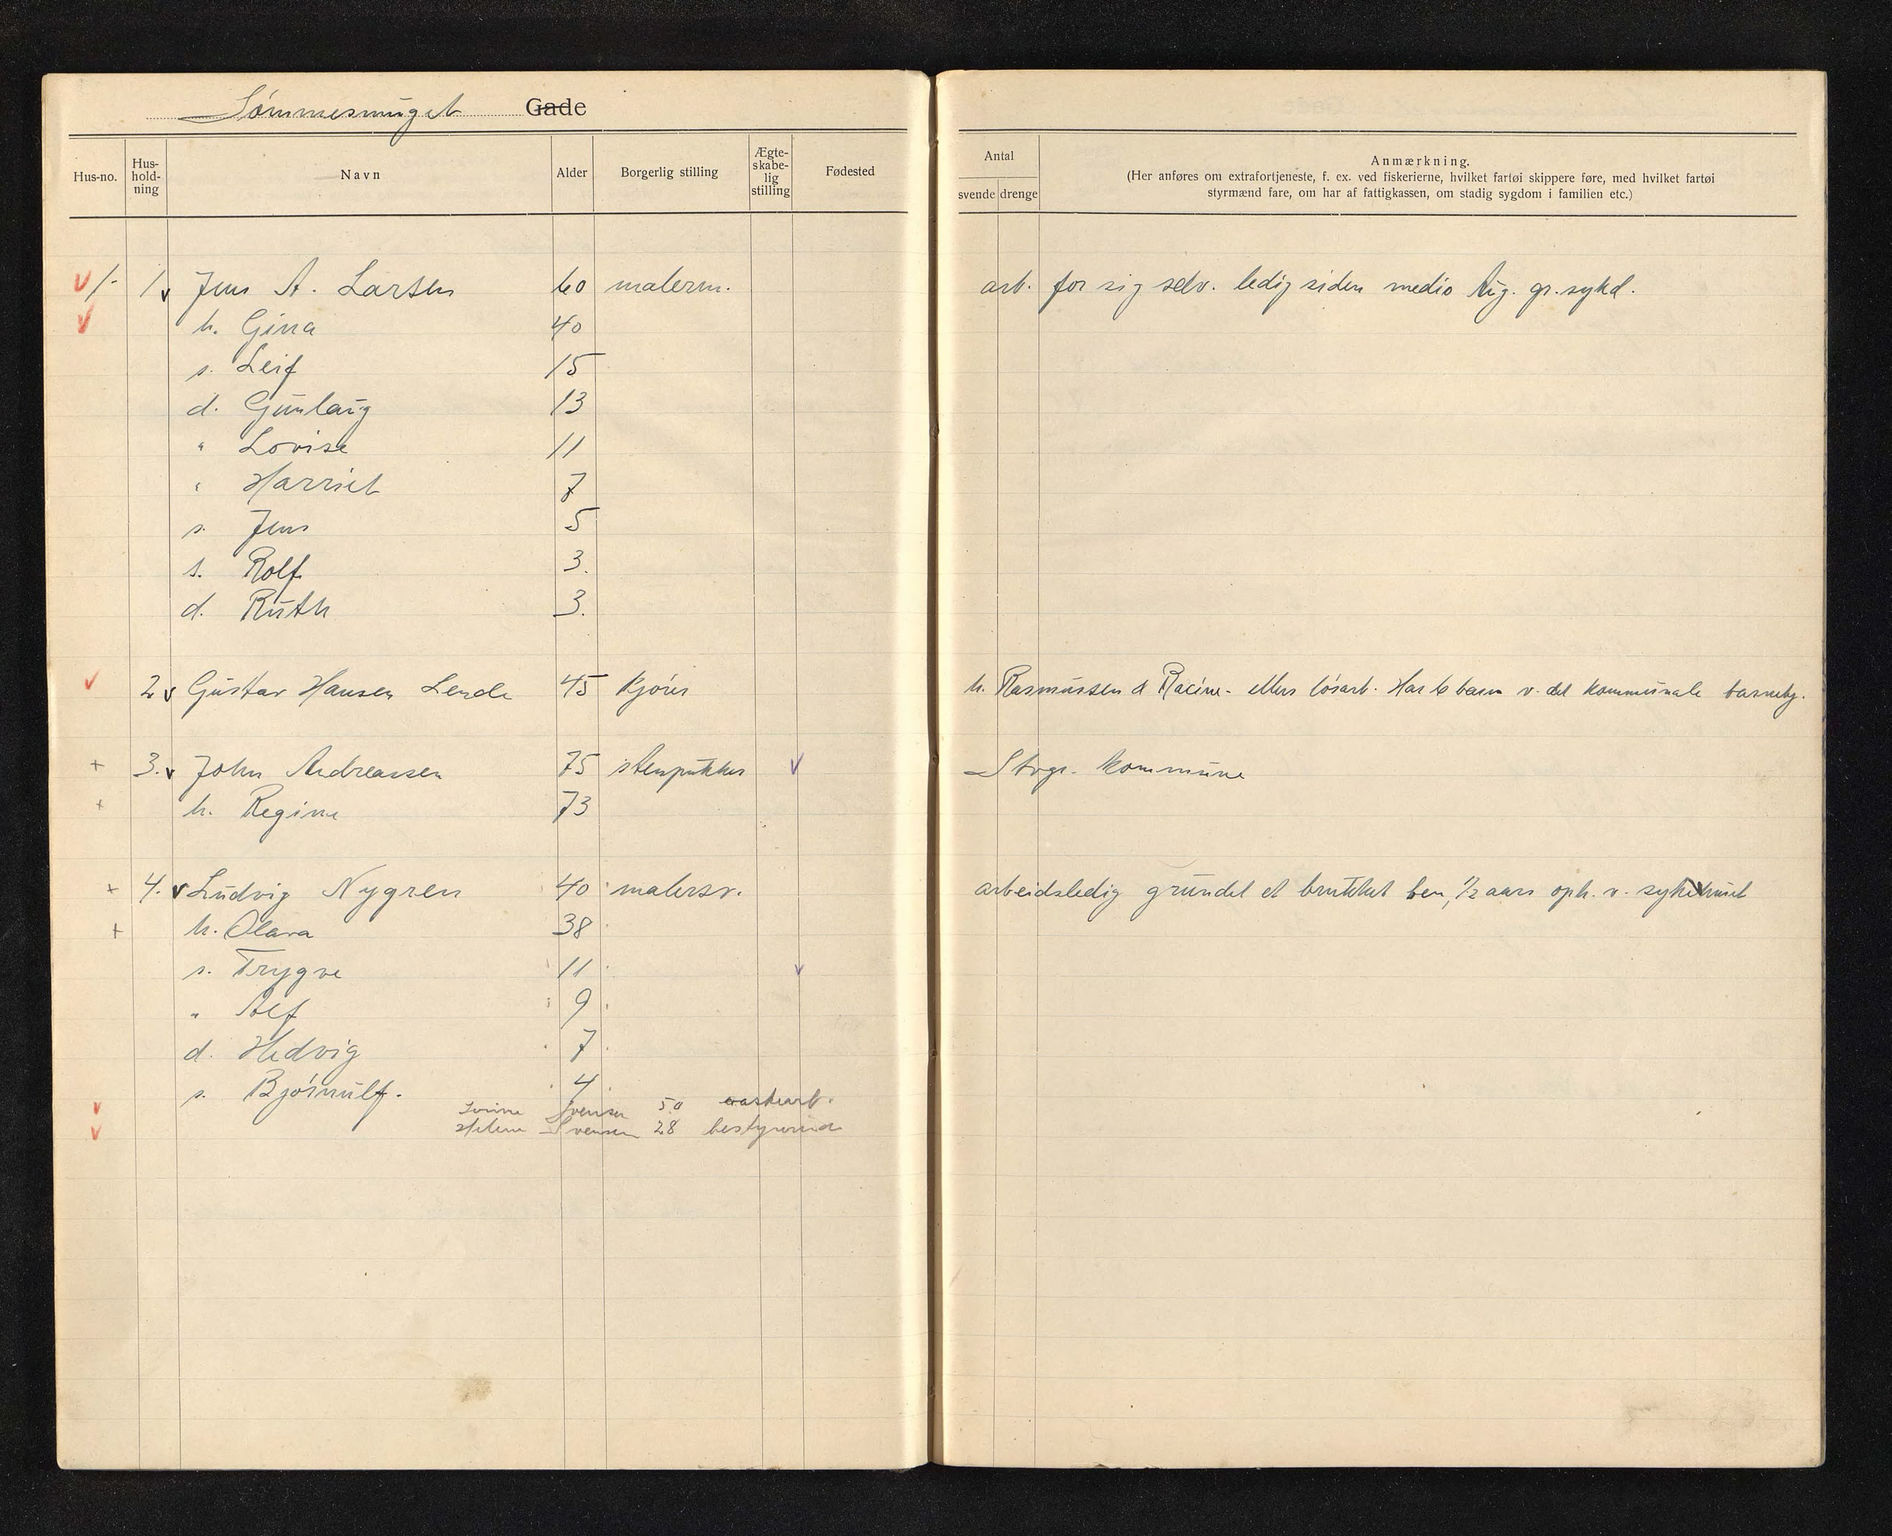 Sømmesmuget Gade
Hus-no. Hus-hold-ning Navn Alder Borgerlig stilling Ægte-skabe-lig stilling Fødested
Antal
svende drenge
Anmærkning.
(Her anføres om extrafortjeneste, f. ex. ved fiskerierne, hvilket fartøi skippere føre, med hvilket fartøi
styrmænd fare, om har af fattigkassen, om stadig sygdom i familien etc.)
1 1 Jens A. Larsen 60 malerm. arb. for sig selv. ledig siden medio Aug. gr. sykd.
h. Gina 40
s. Leif 15
d. Gunlaug 13
" Lovise 11
" Harriet 7
s. Jens 5
s. Rolf 3.
d. Ruth 3.
2 Gustav Hansen Lende 45 kjører h. Rasmussen & Racine - ellers løsarb. Har 6 barn v. det kommunale
3. John Andreassen 75 stenpukker Stvgr. kommune
h. Regine 73
4. Ludvig Nygren 40 malersv. arbeidsledig grundet et brukket ben, 1/2 aars oph. v. sykehuset
h. Olava 38
s. Trygve 11
" Alf 9
d. Hedvig 7
s. Bjørnulf. 4
Svensen 50 vaskearb.
Helene Svensen 28 bestyrerinde